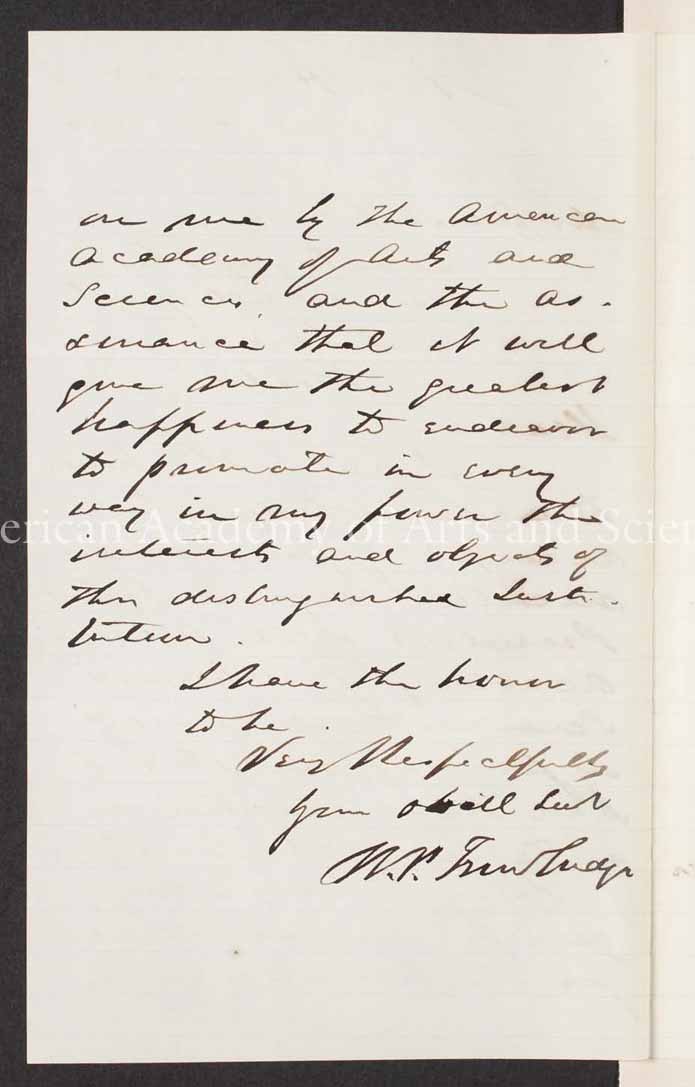 on me by the American
Academy of Arts and
Sciences, and the as-
surance that it will
give me the greatest
happiness to endeavor
to promote in every
way in my power the
erican Academy of Arts and Scien
interests and objects of
this distinguished Insti-
tution.
I have the honor
to be.
Very Respectfully
Your obdt Sert
W.P. Trowbridge